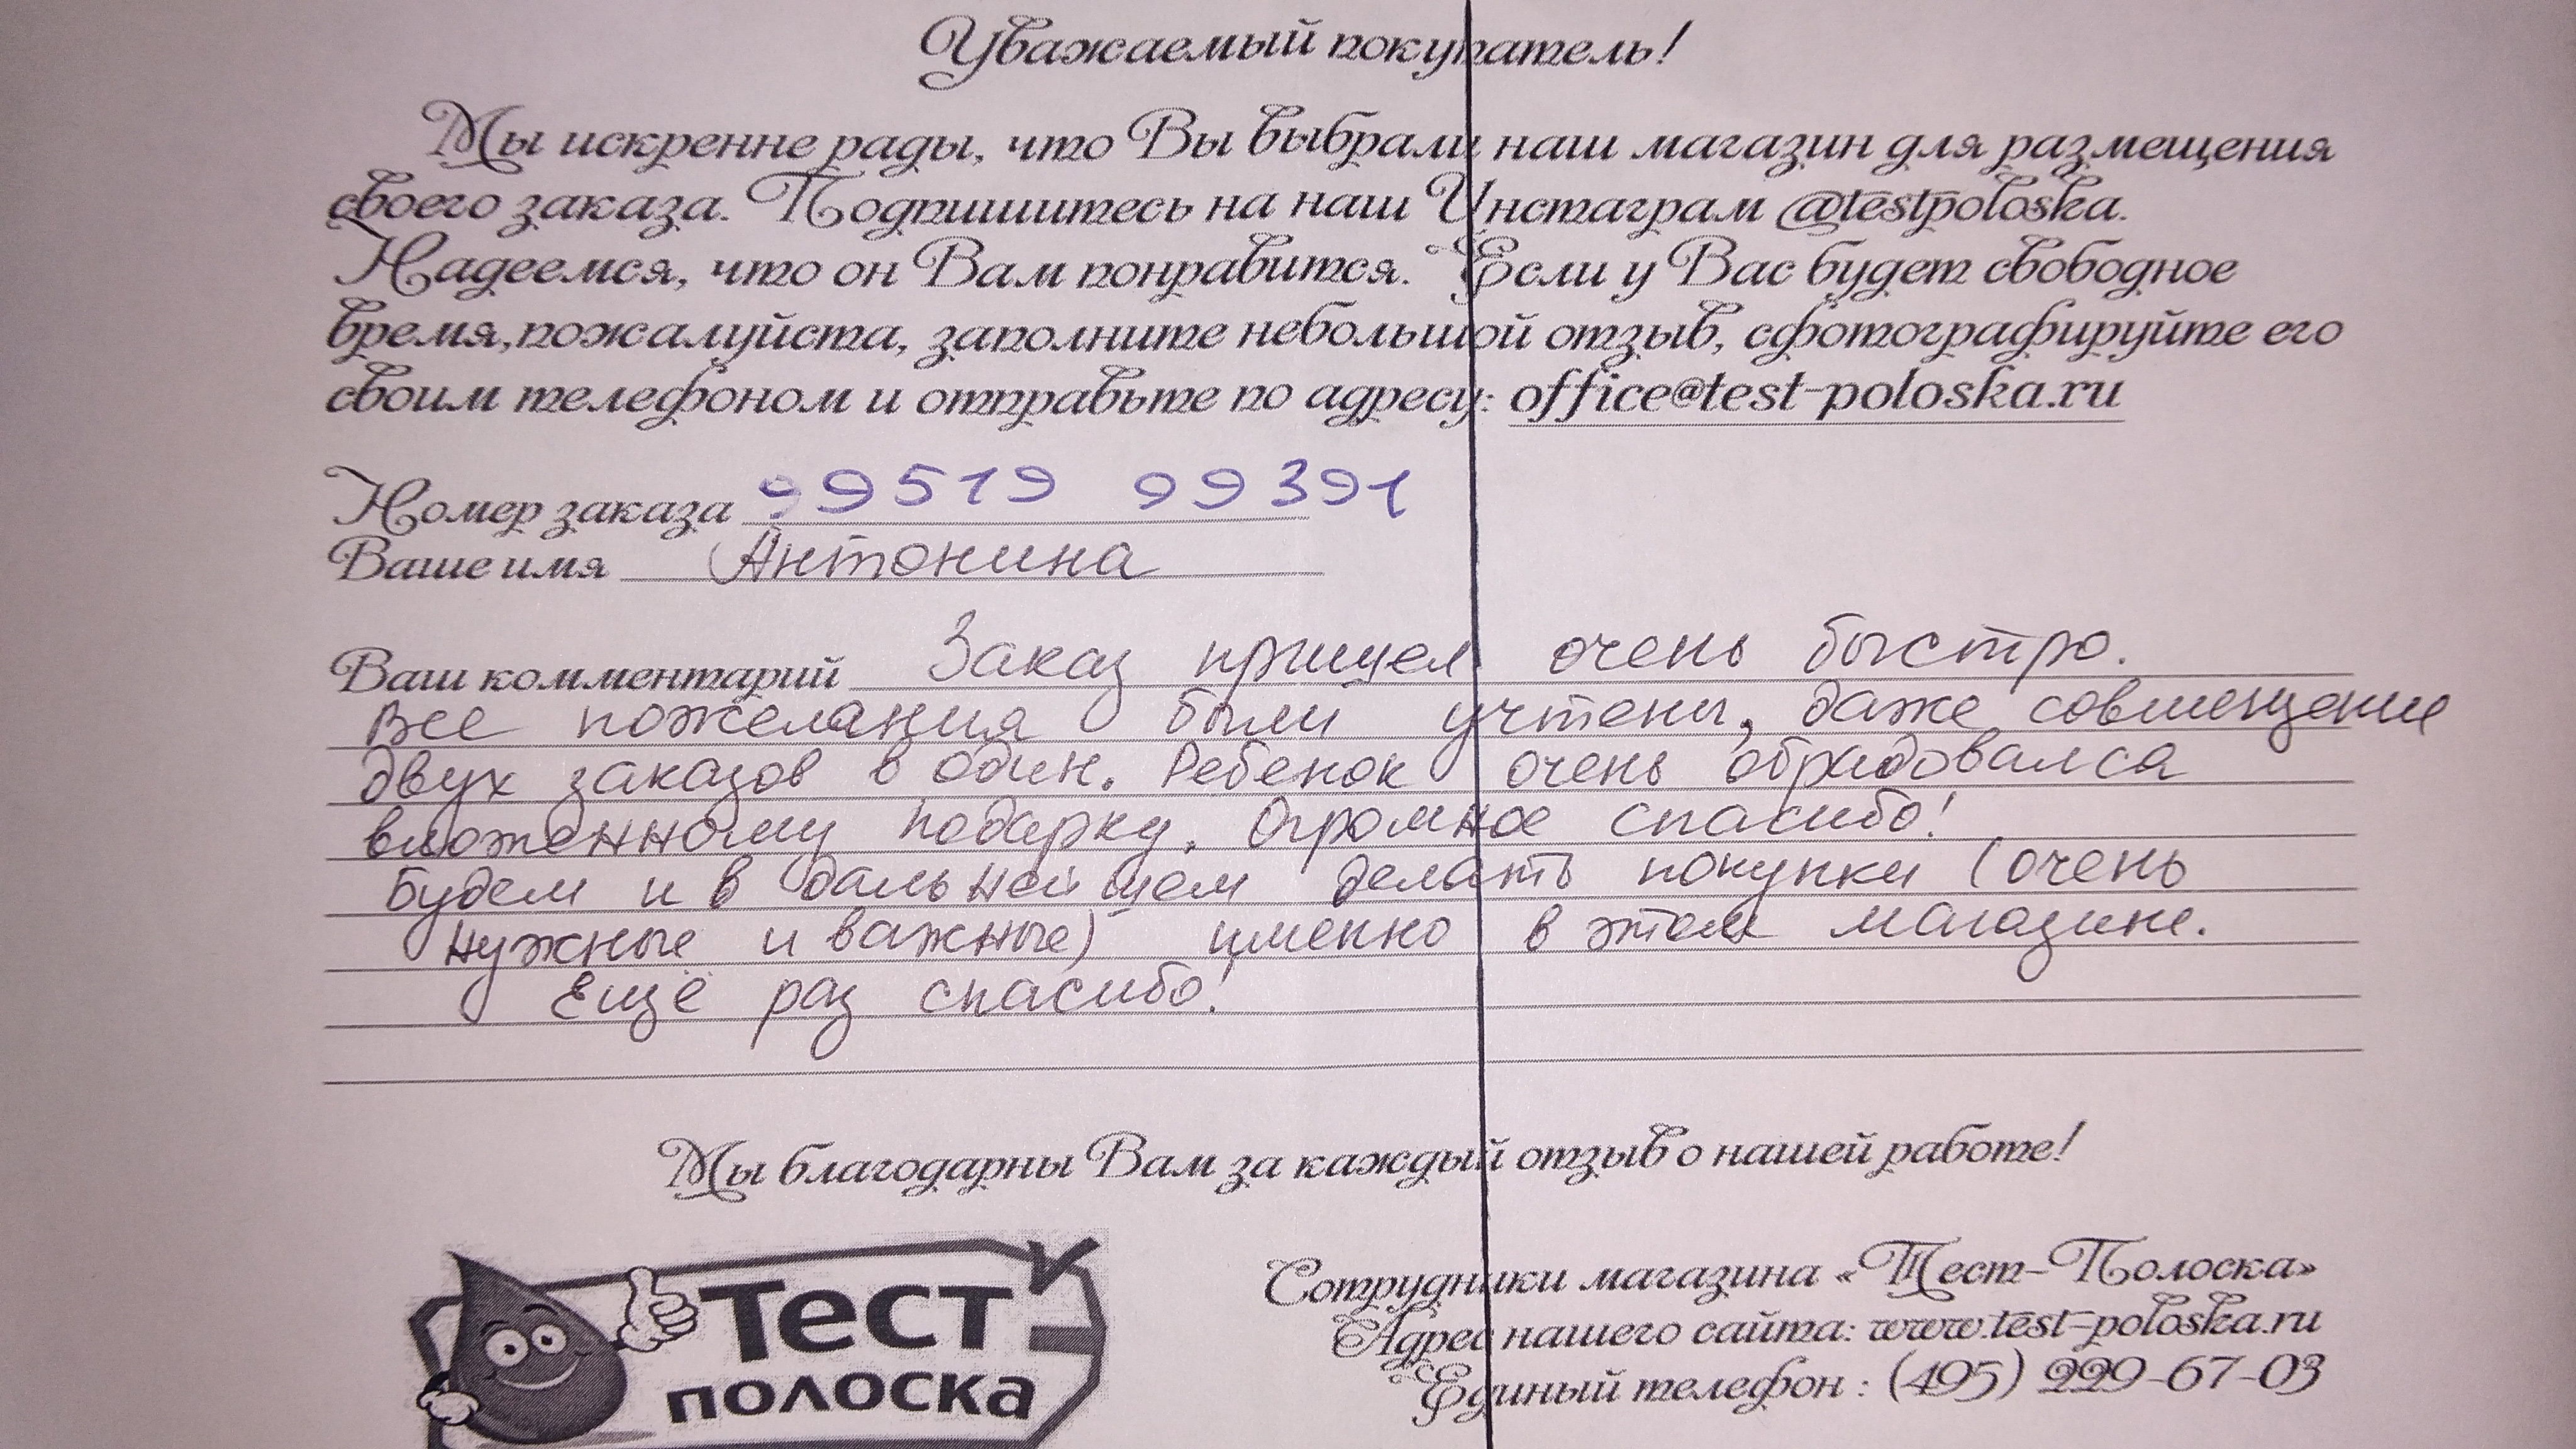 Уважаемый покупатель!
Мы искренне рады, что Вы выбрали наш магазин для размещения
своего заказа. Подпишитесь на наш Инстаграм @testpoloska.
Надеемся, что он Вам понравится. Если у Вас будет свободное
время,пожалуйста, заполните небольшой отзыв, сфотографируйте его
своим телефоном и отправьте по адресу: office@test-poloska.ru
Номер заказа 99519 99391
Ваше имя Антонина
Ваш комментарий Заказ пришел очень быстро.
Все пожелания были учтены, даже совмещение
двух заказов в один. Ребенок очень обрадовался
вложенному подарку. Огромное спасибо!
Будем и в дальнейшем делать покупки (очень
нужные и важные) именно в этом магазине.
Ещё раз спасибо!
Мы благодарны Вам за каждый отзыв о нашей работе!
Тест
полоска
Сотрудники магазина «Тест-Полоска»
Адрес нашего сайта: www.test-poloska.ru
Единый телефон : (495) 229-67-03